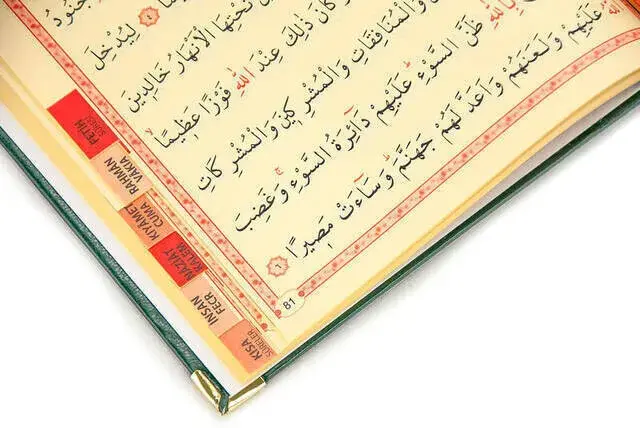 جُنُودُ
٤ لِيُدْخِلَ
تَحْتِهَا الْاَنْهَارُ خَالِد۪ينَ
كَانَ ذٰلِكَ عِنْدَ اللّٰهِ فَوْزًا عَظ۪يمًا
وَالْمُنَافِقَاتِ وَالْمُشْرِك۪ينَ وَالْمُشْرِكَاتِ
بِاللّٰهِ ظَنَّ السَّوْءِ عَلَيْهِمْ دَٓائِرَةُ السَّوْءِ وَغَضِبَ
عَلَيْهِمْ وَلَعَنَهُمْ وَاَعَدَّ لَهُمْ جَهَنَّمَ وَسَٓاءَتْ مَص۪يرًا ٦
81
FETİH
SURESİ
RAHMAN
VAKIA
KIYAMET
CUMA
NAZİAT
KALEM
İNSAN
FECR
KISA
SURELER